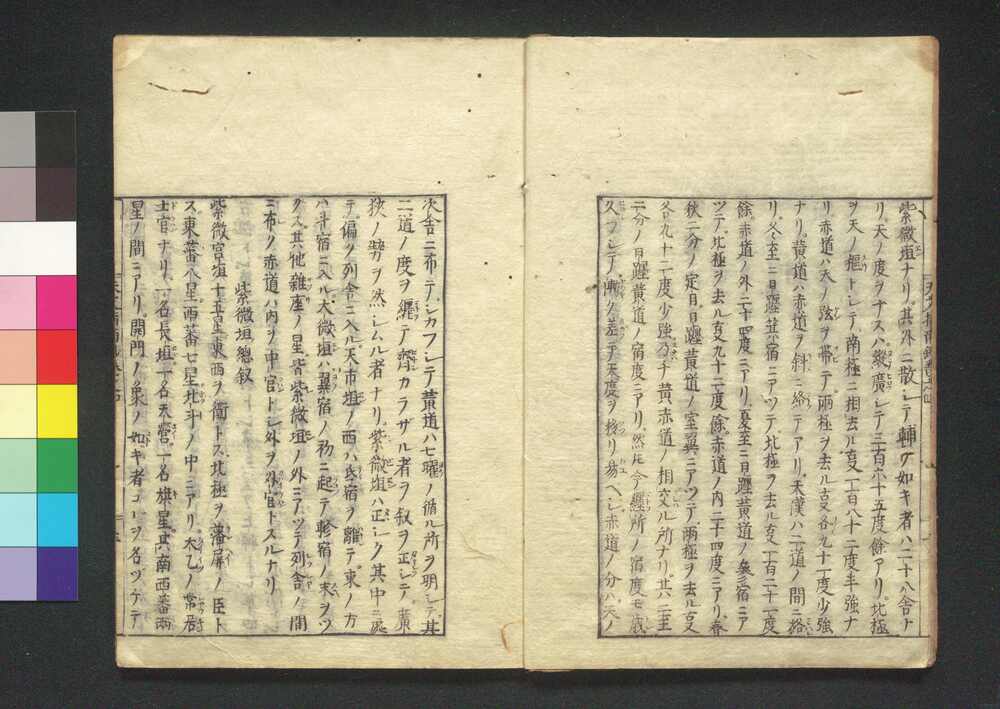 紫微垣ナリ。其外ニ散シテ輔ノ如キ者ハ二十八舎ナ
リ。天ノ度ヲナスハ縱廣シテ三百六十五度餘アリ。北極
ヲ天ノ樞トシテ南極ニ相去ル支一百八十二度半強ナ
リ。赤道ハ天ノ帶テ兩極ヲ去ル支各九十一度少強
ナリ。黄道ハ赤道ヲ斜ニ絡テアリ。天漢ハ二道ノ間ニ絡
リ。冬至ニ日躔箕宿ニアツテ、北極ヲ去ル支一百二十一度
餘赤道ノ外二十四度ニアリ。夏至ニ日躔黄道ノ參宿ニア
ツテ、北極ヲ去ル支九十二度餘赤道ノ内二十四度ニアリ。春
秋二分ノ定日日躔黄道ノ室翼ニアツテ、兩極ヲ去ル支
各九十二度少強乃チ黄赤道ノ相交ル所ナリ。其ハ二至
二分ノ日躔黄道ノ宿度ニアリ。然トモ今經所ノ宿度モ歳
久フシテノ差テ天度ヲ移リ易ヘシ赤道ノ分ハ天ノ
次舎ニ布テ、シカフシテ黄道ハ七曜ノ循ル所ヲ明シテ、其
二道ノ度ヲ纒テ齊カラザル者ヲ叙ヲ正シテ黄
狹ノ勞ヲ然シムル者ナリ。紫微垣ハ正シク其中ニ處
テ、偏ノ列舎ニ入ル天市垣ノ西ハ氐宿ヲ離テ東ノ方
ハ斗宿ニ入ル大微垣ハ翼宿ノ初ニ起テ軫宿ノ末ヲツ
クス其他雜座ノ星皆紫微垣ノ外ニアツテ列舎ノ間
ニ布ク赤道ハ内ヲ中官トシ外ヲ外官トスルナリ
紫微垣總叙
紫微宮垣十五星東西ヲ衞トス北極ヲ藩屏ノ臣ト
ス東蕃八星西蕃七星北斗ノ中ニアリ。大乙ノ常居
士官ナリ。一名長垣一名天營一名旗星其南西蕃兩
星ノ間ニアリ。開門ノ象ノ如キ者コレヲ名ヅケテ